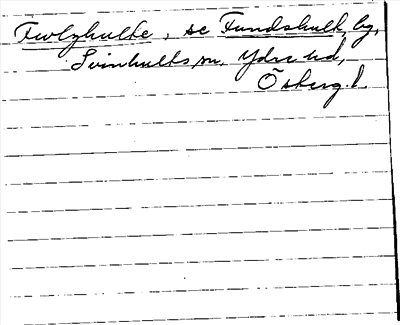 Fwlghulte, se Fundshult, by,
Svinhults sn, Ydre hd,
Österg. l.